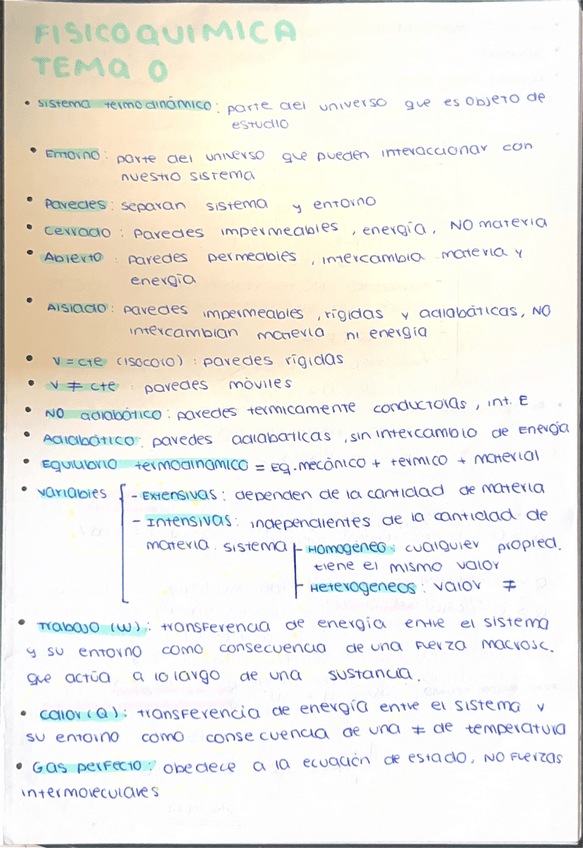 FISICOQUIMICA
TEMA 0
• Sistema termodinámico: parte del universo que es objeto de
estudio
• Entorno: parte del universo que pueden interaccionar con
nuestro sistema
• Paredes: separan sistema y entorno
• Cerrado: Paredes impermeables, energía, NO materia
• Abierto: paredes permeables, intercambia materia y
energía
• Aislado: paredes impermeables, rígidas y adiabáticas, NO
intercambian materia ni energía
• V = cte (isocoro): paredes rígidas
• V ≠ cte: paredes móviles
• NO adiabático: paredes termicamente conductoras, int. E
• Adiabático: paredes adiabaticas, sin intercambio de Energía
• Equilibrio termodinámico = Eq. mecánico + termico + material
• variables - Extensivas: dependen de la cantidad de materia
- Intensivas: independientes de la cantidad de
materia. sistema - Homogéneo: cualquier propied.
tiene el mismo valor
- Heterogeneos: valor ≠
• Trabajo (W): transferencia de energía entre el sistema
y su entorno como consecuencia de una fuerza macrosc.
que actúa a lo largo de una sustancia.
• calor (Q): transferencia de energía entre el sistema y
su entorno como consecuencia de una ≠ de temperatura
• Gas perfecto: obedece a la ecuación de estado, NO fuerzas
intermoleculares